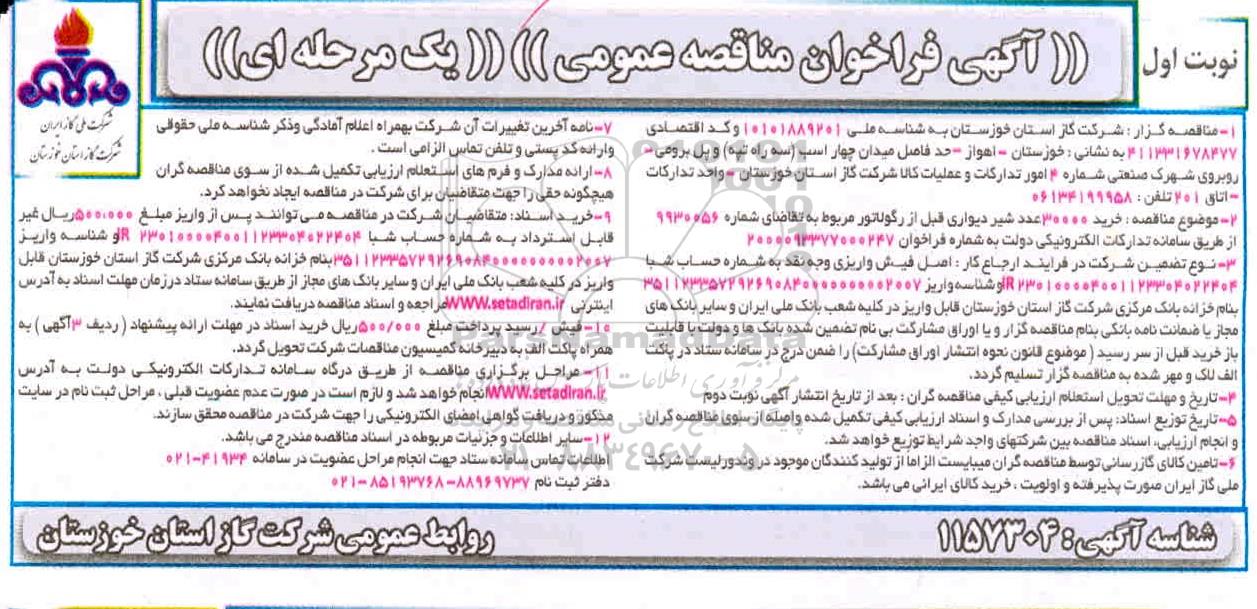 نوبت اول
(( آگهی فراخوان مناقصه عمومی )) (( یک مرحله ای))
شرکت ملی گاز ایران
شرکت گاز استان خوزستان
۱-مناقصه گزار : شرکت گاز استان خوزستان به شناسه ملی ۱۰۱۰۱۸۸۹۲۰۱ و کد اقتصادی
۴۱۱۳۳۱۶۷۸۴۷۷ به نشانی : خوزستان -اهواز -حد فاصل میدان چهار اسب (سه راه تپه) و پل برومی-
روبروی شهرک صنعتی شماره ۴ امور تدارکات و عملیات کالا شرکت گاز استان خوزستان -واحد تدارکات
-اتاق ۲۰۱ تلفن : ۰۶۱۳۴۱۹۹۹۵۸
۲-موضوع مناقصه : خرید ۳۰۰۰۰عدد شیر دیواری قبل از رگولاتور مربوط به تقاضای شماره ۹۹۳۰۰۵۶
از طریق سامانه تدارکات الکترونیکی دولت به شماره فراخوان ۲۰۰۰۰۹۳۳۷۷۰۰۰۲۴۷
۳-نوع تضمین شرکت در فرایند ارجاع کار : اصل فیش واریزی وجه نقد به شماره حساب شبا
IR۲۳۰۱۰۰۰۰۴۰۰۱۱۲۳۳۰۴۰۲۲۴۰۴وشناسه واریز ۳۵۱۱۲۳۳۵۷۲۹۲۶۹۰۸۴۰۰۰۰۰۰۰۰۰۰۲۰۰۷
بنام خزانه بانک مرکزی شرکت گاز استان خوزستان قابل واریز در کلیه شعب بانک ملی ایران و سایر بانک های
مجاز یا ضمانت نامه بانکی بنام مناقصه گزار و یا اوراق مشارکت بی نام تضمین شده بانک ها و دولت با قابلیت
باز خرید قبل از سر رسید ( موضوع قانون نحوه انتشار اوراق مشارکت) را ضمن درج در سامانه ستاد در پاکت
الف لاک و مهر شده به مناقصه گزار تسلیم گردد.
۴-تاریخ و مهلت تحویل استعلام ارزیابی کیفی مناقصه گران : بعد از تاریخ انتشار آگهی نوبت دوم
۵-تاریخ توزیع اسناد: پس از بررسی مدارک و اسناد ارزیابی کیفی تکمیل شده واصله از سوی مناقصه گران
و انجام ارزیابی، اسناد مناقصه بین شرکتهای واجد شرایط توزیع خواهد شد.
۶-تامین کالای گازرسانی توسط مناقصه گران میبایست الزاما از تولید کنندگان موجود در وندورلیست شرکت
ملی گاز ایران صورت پذیرفته و اولویت ، خرید کالای ایرانی می باشد.
۷-نامه آخرین تغییرات آن شرکت بهمراه اعلام آمادگی وذکر شناسه ملی حقوقی
وارائه کد پستی و تلفن تماس الزامی است .
۸-ارائه مدارک و فرم های استعلام ارزیابی تکمیل شده از سوی مناقصه گران
هیچگونه حقی را جهت متقاضیان برای شرکت در مناقصه ایجاد نخواهد کرد.
۹-خرید اسناد: متقاضیان شرکت در مناقصه می توانند پس از واریز مبلغ ۵۰۰،۰۰۰ریال غیر
قابل استرداد به شماره حساب شبا IR ۲۳۰۱۰۰۰۰۴۰۰۱۱۲۳۳۰۴۰۲۲۴۰۴و شناسه واریز
۳۵۱۱۲۳۳۵۷۲۹۲۶۹۰۸۴۰۰۰۰۰۰۰۰۰۰۲۰۰۷بنام خزانه بانک مرکزی شرکت گاز استان خوزستان قابل
واریز در کلیه شعب بانک ملی ایران و سایر بانک های مجاز از طریق سامانه ستاد درزمان مهلت اسناد به آدرس
اینترنتی WWW.setadiran.irمراجعه و اسناد مناقصه دریافت نمایند.
۱۰-فیش /رسید پرداخت مبلغ ۵۰۰/۰۰۰ریال خرید اسناد در مهلت ارائه پیشنهاد ( ردیف ۳آگهی ) به
همراه پاکت الف به دبیرخانه کمیسیون مناقصات شرکت تحویل گردد.
۱۱-مراحل برگزاری مناقصه از طریق درگاه سامانه تدارکات الکترونیکی دولت به آدرس
WWW.setadiran.irانجام خواهد شد و لازم است در صورت عدم عضویت قبلی ، مراحل ثبت نام در سایت
مذکور و دریافت گواهی امضای الکترونیکی را جهت شرکت در مناقصه محقق سازند.
۱۲-سایر اطلاعات و جزئیات مربوطه در اسناد مناقصه مندرج می باشد.
اطلاعات تماس سامانه ستاد جهت انجام مراحل عضویت در سامانه ۴۱۹۳۴-۰۲۱
دفتر ثبت نام ۸۸۹۶۹۷۳۷-۸۵۱۹۳۷۶۸-۰۲۱
شناسه آگهی : ۱۱۵۷۳۰۴
روابط عمومی شرکت گاز استان خوزستان
ParsNamadData